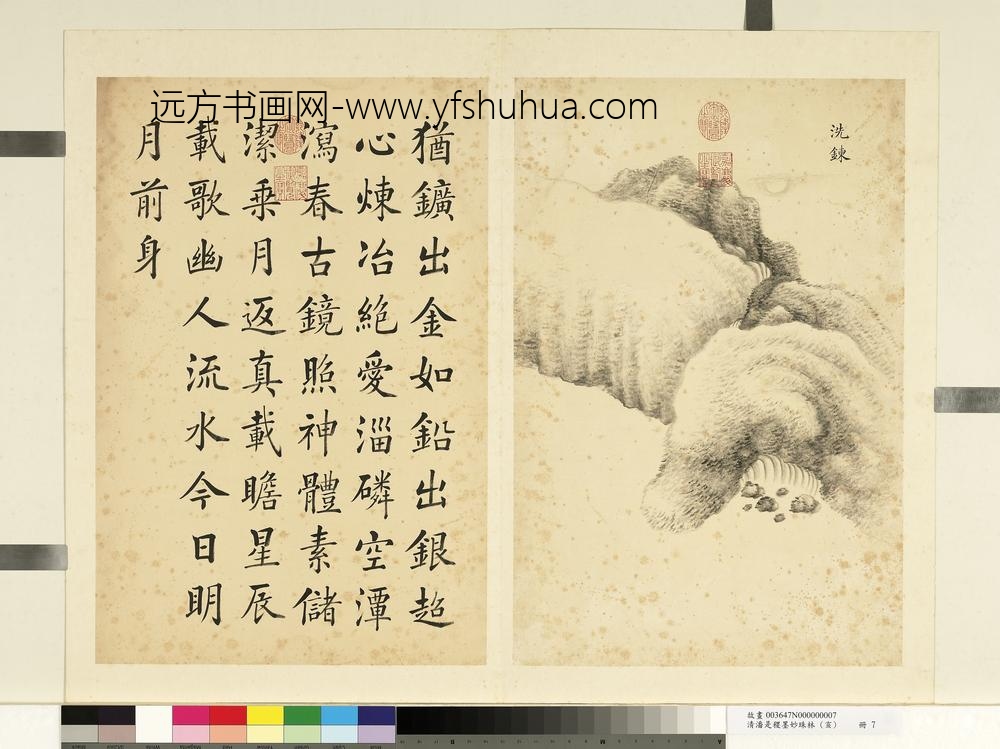 远方书画网-www.yfshuhua.com
洗鍊
猶鑛出金如鉛出銀超
心煉冶絕愛淄磷空潭
瀉春古鏡照神體素儲
潔乗月返真載瞻星辰
載歌幽人流水今日明
月前身
故畫 003647N000000007
清潘是稷墨妙珠林（亥） 冊 7